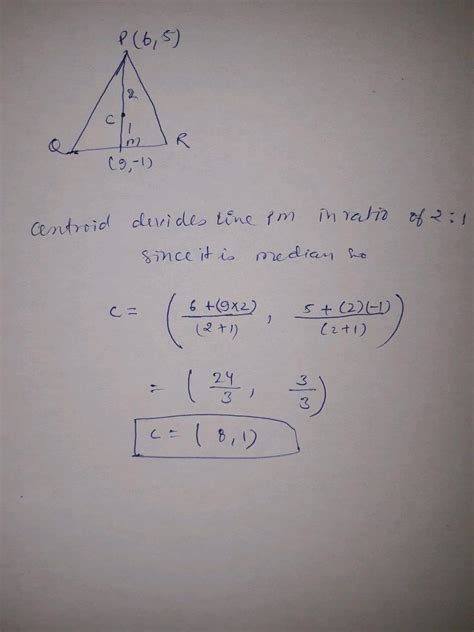 P(6,5)
2
C
1
Q m R
(9,-1)
Centroid devides line PM in ratio of 2:1
Since it is median so
C = ( 6+(9×2) / (2+1) , 5+(2)(-1) / (2+1) )
= ( 24/3 , 3/3 )
C = ( 8,1)